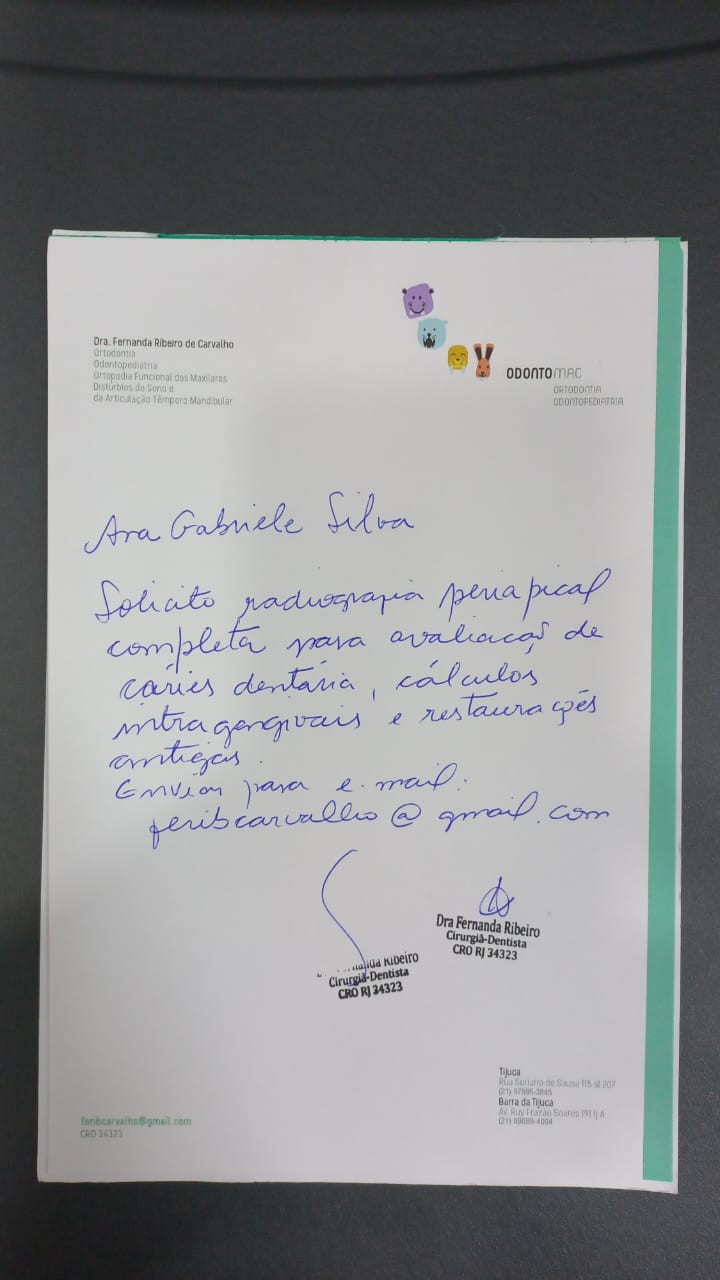 Dra. Fernanda Ribeiro de Carvalho
Ortodontia
Odontopediatria
Ortopedia Funcional dos Maxilares
Distúrbios do Sono e
da Articulação Têmporo Mandibular
ODONTOMAC
ORTODONTIA
ODONTOPEDIATRIA
Ana Gabriele Silva
Solicito radiografia periapical
completa para avaliação de
cáries dentária, cálculos
intragengivais e restaurações
antigas.
Enviar para e-mail:
feribcarvalho@gmail.com
Dra Fernanda Ribeiro
Cirurgiã-Dentista
CRO RJ 34323
Ribeiro
Cirurgiã-Dentista
CRO RJ 34323
Tijuca
Rua Soriano de Sousa 115 sl 207
(21) 97985-3845
Barra da Tijuca
Av. Ruy Frazão Soares 191 lj A
(21) 99699-4004
feribcarvalho@gmail.com
CRO 34323